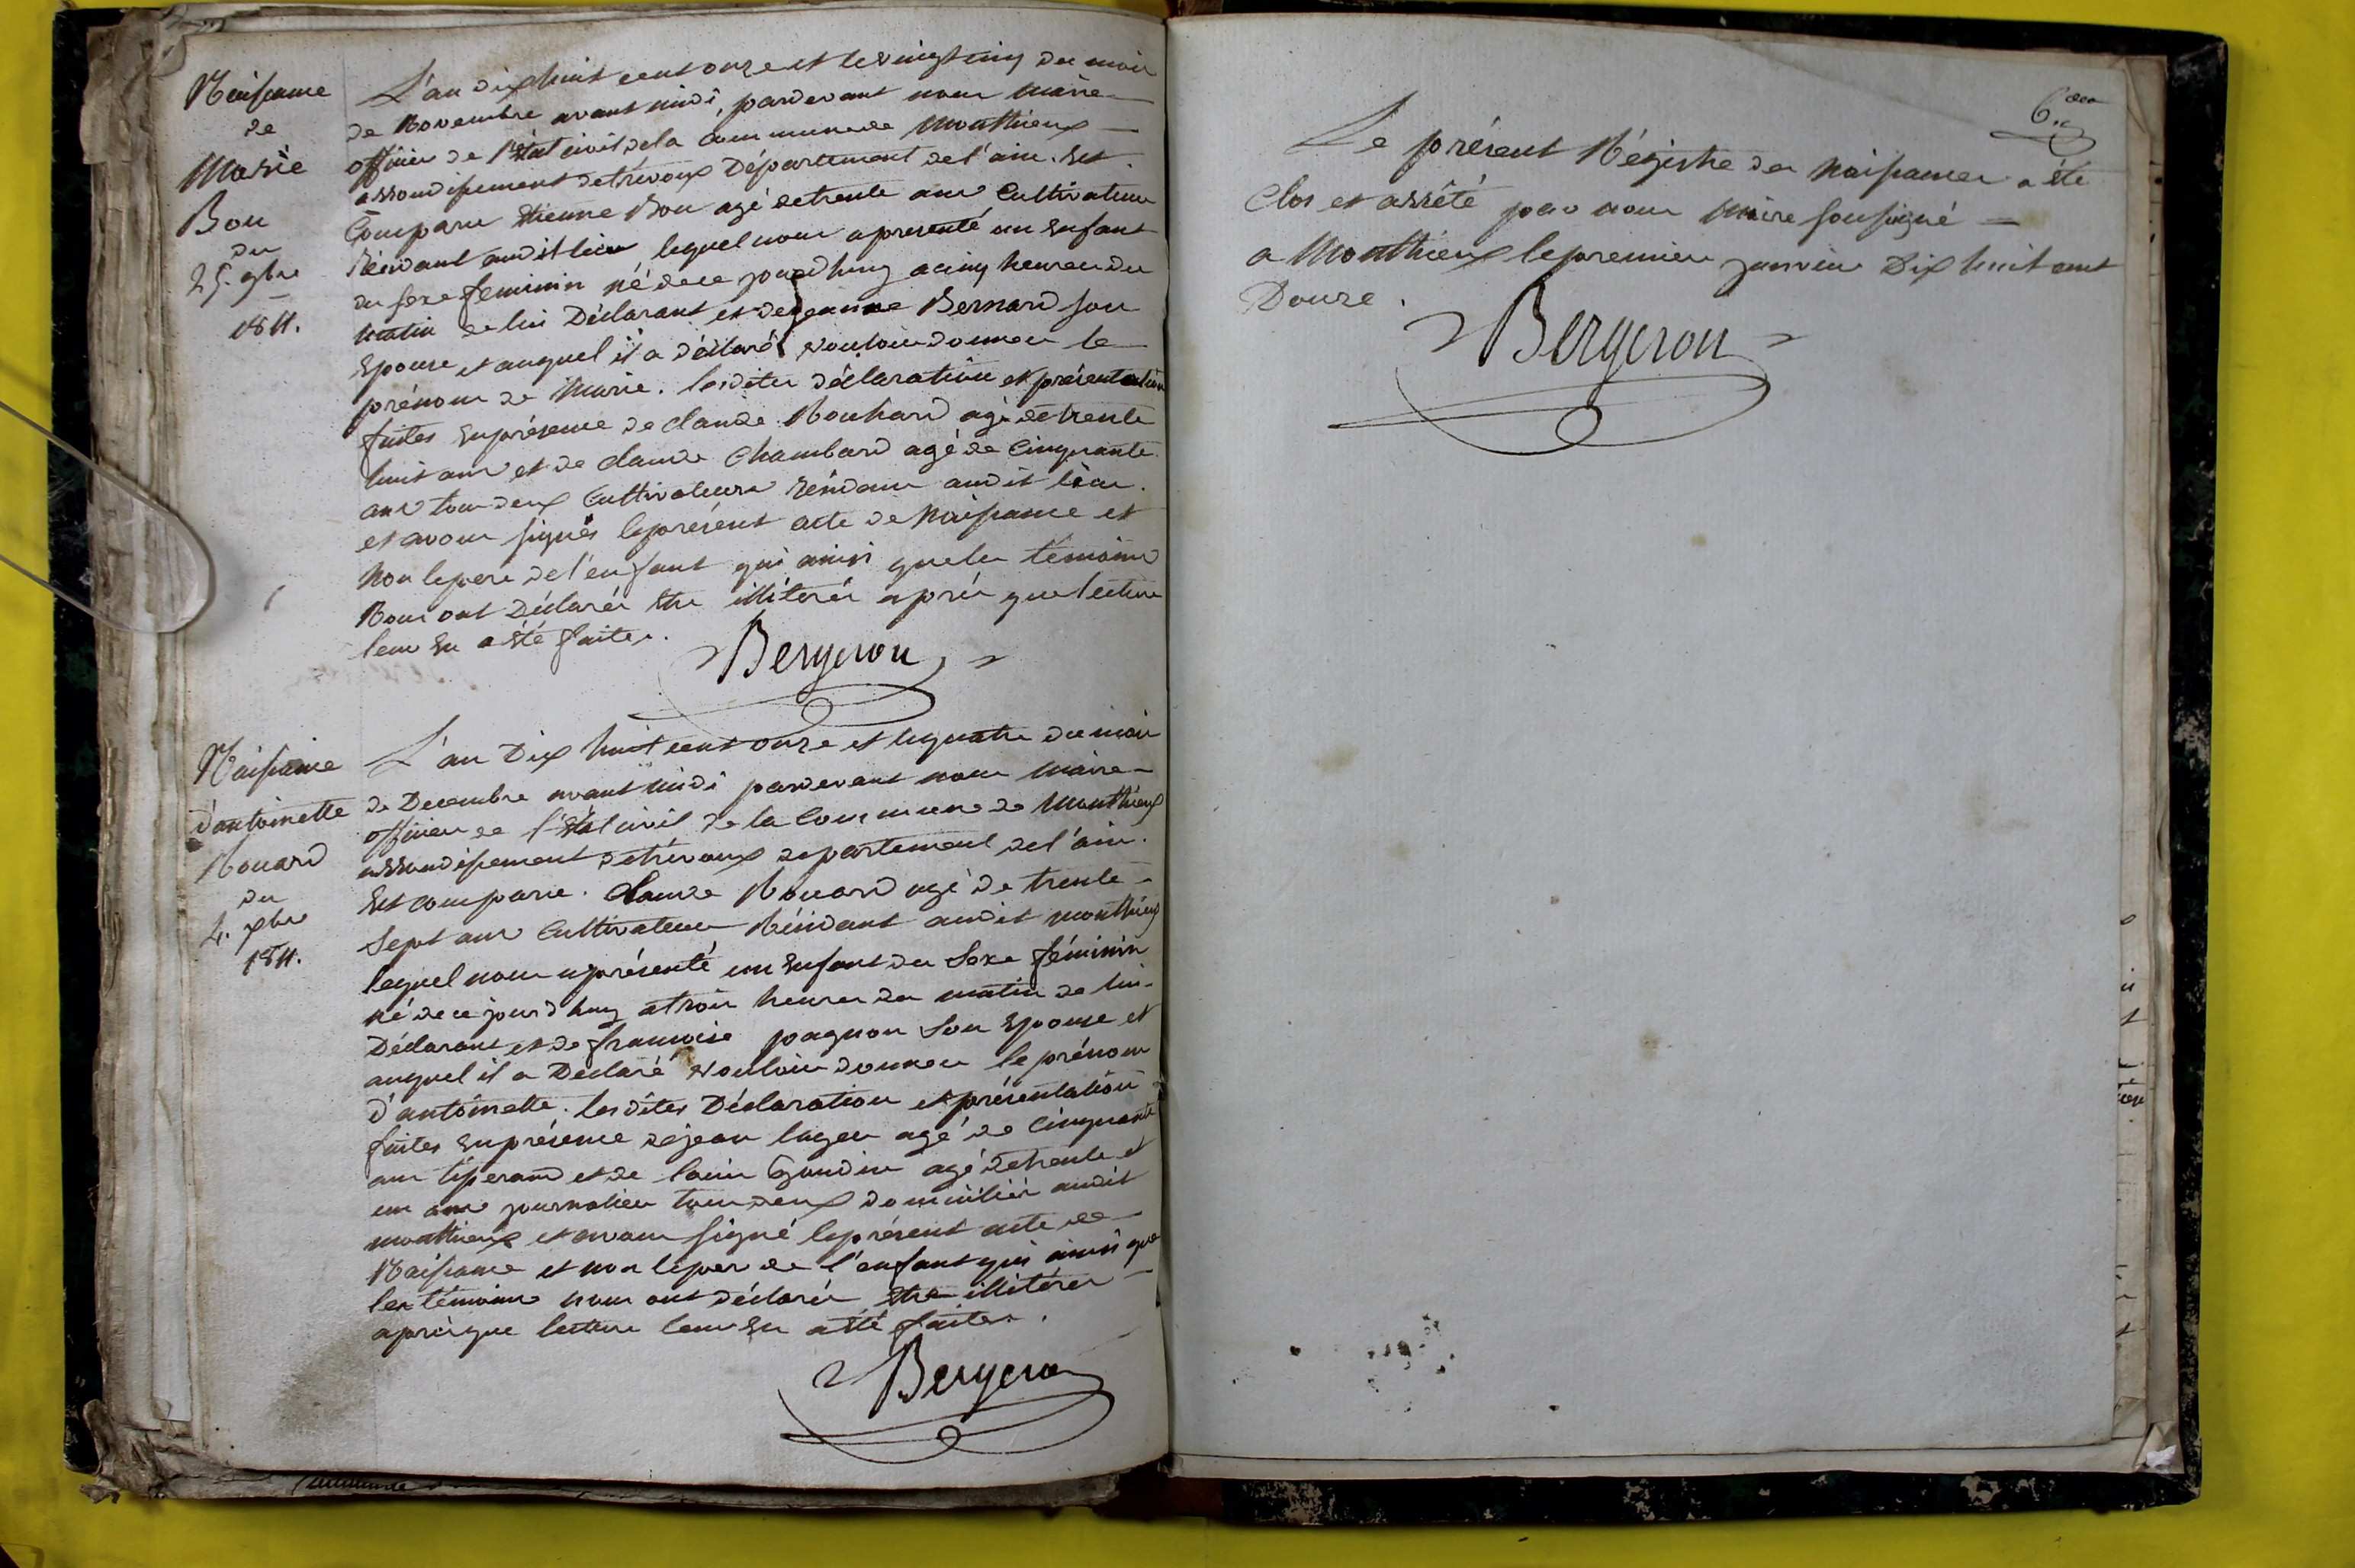 Naissance
de
Marie
Bon
du
25. 9bre
1811.
L'an dix huit cent onze et le vingt cinq du mois
de Novembre avant midi, pardevant nous Maire
officier de l'Etat civil de la commune de Monthieux
arrondissement de trévoux Département de l'ain. Est
Comparu Etienne Bon agé de trente ans Cultivateur
Résidant audit lieu, lequel nous a presenté un Enfant
du sexe feminin né de ce jourd'huy a cinq heures du
matin de lui Déclarant et de jeanne Bernard son
Epouse et auquel il a déclaré vouloir donner le
prénom de Marie. les dites déclaration et présentation
faites En présence de claude Rouhard agé de trente
huit ans et de claude Chambard agé de Cinquante
ans tous deux Cultivateurs Résidans audit lieu.
et avons signés le présent acte de Naissance et
Non le pere de l'enfant qui ainsi que les témoins
Nous ont Déclarés Etre illitérés après que lecture
leur En a été faites.
Bergeron
Naissance
d'antoinette
Rouard
du
4. xbre
1811.
L'an Dix huit cent onze et le quatre du mois
de Decembre avant midi pardevant nous Maire
officier de l'Etat civil de la Commune de Monthieux
arrondissement de trévoux département de l'ain.
Est comparu. Claude Rouard agé de trente
Sept ans Cultivateur Résidant audit monthieux
lequel nous a présenté un Enfant du Sexe féminin
né de ce jourd'huy a trois heures du matin de lui
Déclarant et de francoise pagnon Son Epouse et
auquel il a Déclaré vouloir donner le prénom
d'antoinette. les dites Déclaration et présentation
faites En présence de jean luger agé de Cinquante
ans tisserand et de louis Gaudin agé de trente et
un ans journalier tous deux domiciliés audit
monthieux et avons signé le présent acte de
Naissance et non le pere de l'enfant qui ainsi que
les témoins nous ont déclarés Etre illitérés
après que lecture leur En a été faites.
Bergeron
6.
Le présent Régistre des Naissances a été
Clos et arrêté par nous Maire soussigné
a Monthieux le premier janvier Dix huit cent
Douze.
Bergeron